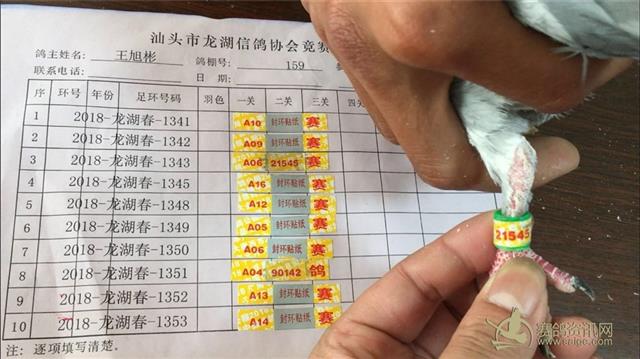 汕头市龙湖信鸽协会竞赛
鸽主姓名： 王旭彬 鸽棚号： 159
联系电话： 日期：
序 环号 年份 足环号码 羽色 一关 二关 三关 四
1 2018-龙湖春-1341 A10 封环贴纸 赛
2 2018-龙湖春-1342 A09 封环贴纸 赛
3 2018-龙湖春-1343 A06 21545 赛
4 2018-龙湖春-1345 A16 封环贴纸 赛
5 2018-龙湖春-1348 A12 封环贴纸 赛
6 2018-龙湖春-1349 A05 封环贴纸 赛
7 2018-龙湖春-1350 A06 封环贴纸 赛
8 2018-龙湖春-1351 A04 90142 鸽
9 2018-龙湖春-1352 A13 封环贴纸 赛
10 2018-龙湖春-1353 A14 封环贴纸 赛
注：逐项填写清楚。
21545
赛鸽资讯网
www.saige.com